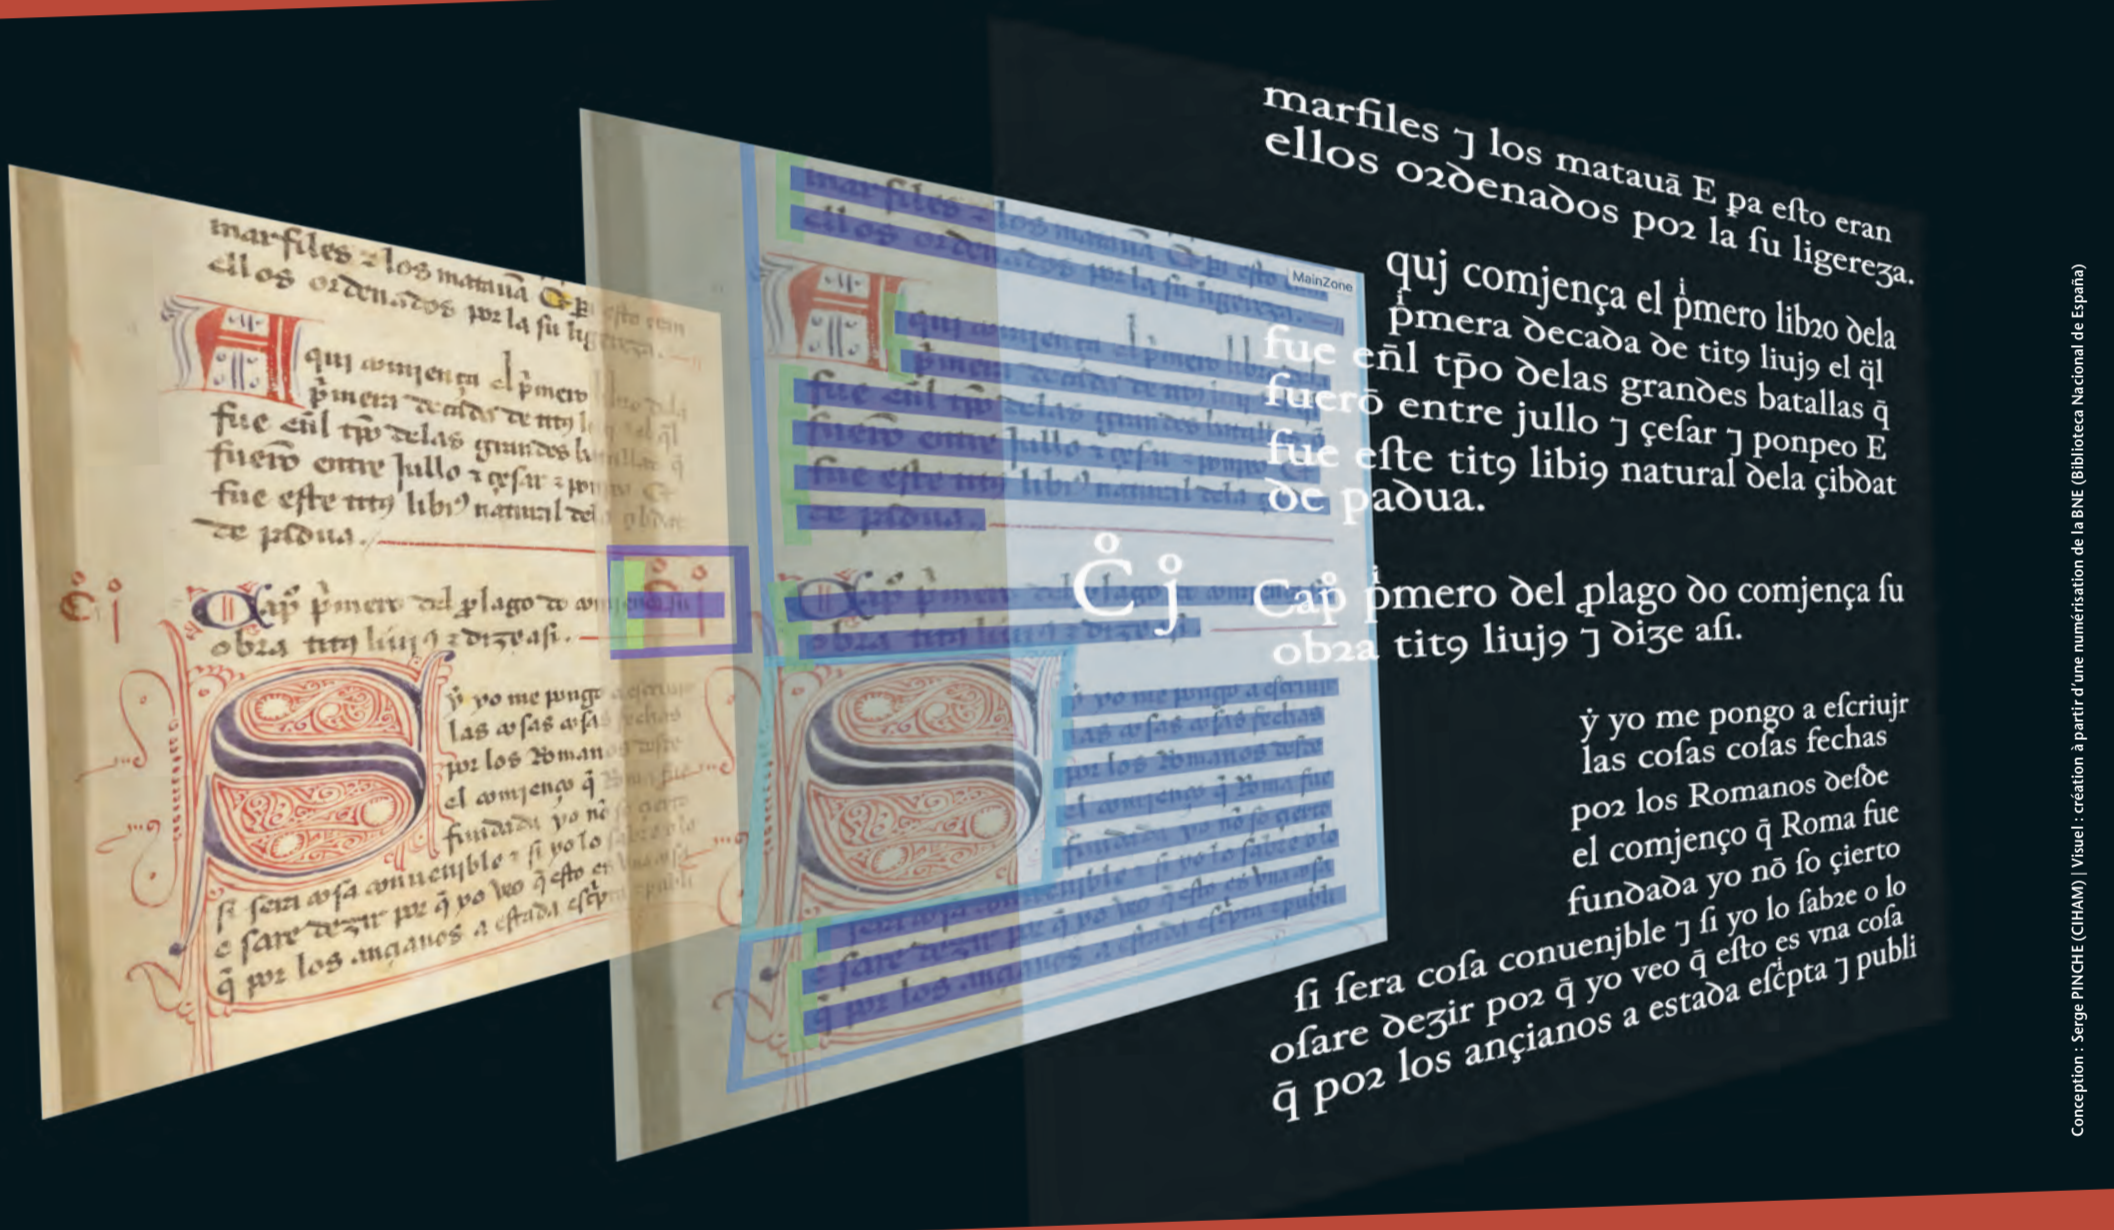 marfiles ⁊ los matauā E ꝑa eſto eran
ellos oꝛꝺenaꝺos poꝛ la ſu ligereʒa.
quj comjença el pͥmero libꝛo ꝺela
pͥmera ꝺecaꝺa ꝺe titꝯ liujꝯ el q̈l
fue en̄l tp̄o ꝺelas granꝺes batallas q̄
fuerō entre jullo ⁊ çeſar ⁊ ponpeo E
fue eſte titꝯ libiꝯ natural ꝺela çibꝺat
ꝺe paꝺua.
C̊ j̊
Cap̊ pͥmero ꝺel ꝓlago ꝺo comjença ſu
obꝛa titꝯ liujꝯ ⁊ ꝺiʒe aſi.
ẏ yo me pongo a eſcriujr
las coſas coſas fechas
poꝛ los Romanos ꝺeſꝺe
el comjenço q̄ Roma fue
funꝺaꝺa yo nō ſo çierto
ſi ſera coſa conuenjble ⁊ ſi yo lo ſabꝛe o lo
oſare ꝺeʒir poꝛ q̄ yo veo q̄ eſto es vna coſa
q̄ poꝛ los ançianos a estaꝺa eſcͥpta ⁊ publi
MainZone
Conception : Serge PINCHE (CIHAM) | Visuel : création à partir d'une numérisation de la BNE (Biblioteca Nacional de España)